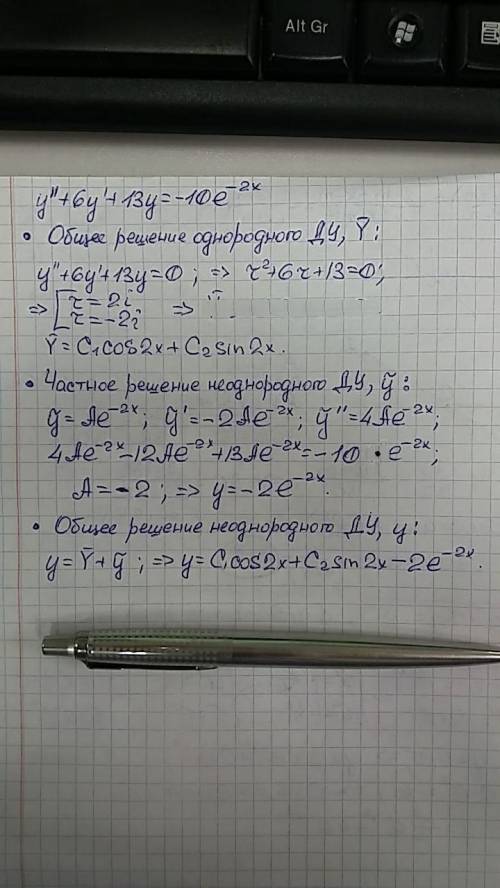 Alt Gr
y''+6y'+13y=-10e^-2x
• Общее решение однородного ДУ, Ȳ:
y''+6y'+13y=0; => r²+6r+13=0;
=> [r=2i =>
r=-2i
Ȳ=C₁cos2x+C₂sin2x.
• Частное решение неоднородного ДУ, ỹ:
ỹ=Ae^-2x; ỹ'=-2Ae^-2x; ỹ''=4Ae^-2x;
4Ae^-2x-12Ae^-2x+13Ae^-2x=-10·e^-2x;
A=-2; => y=-2e^-2x.
• Общее решение неоднородного ДУ, y:
y=Ȳ+ỹ; => y=C₁cos2x+C₂sin2x-2e^-2x.